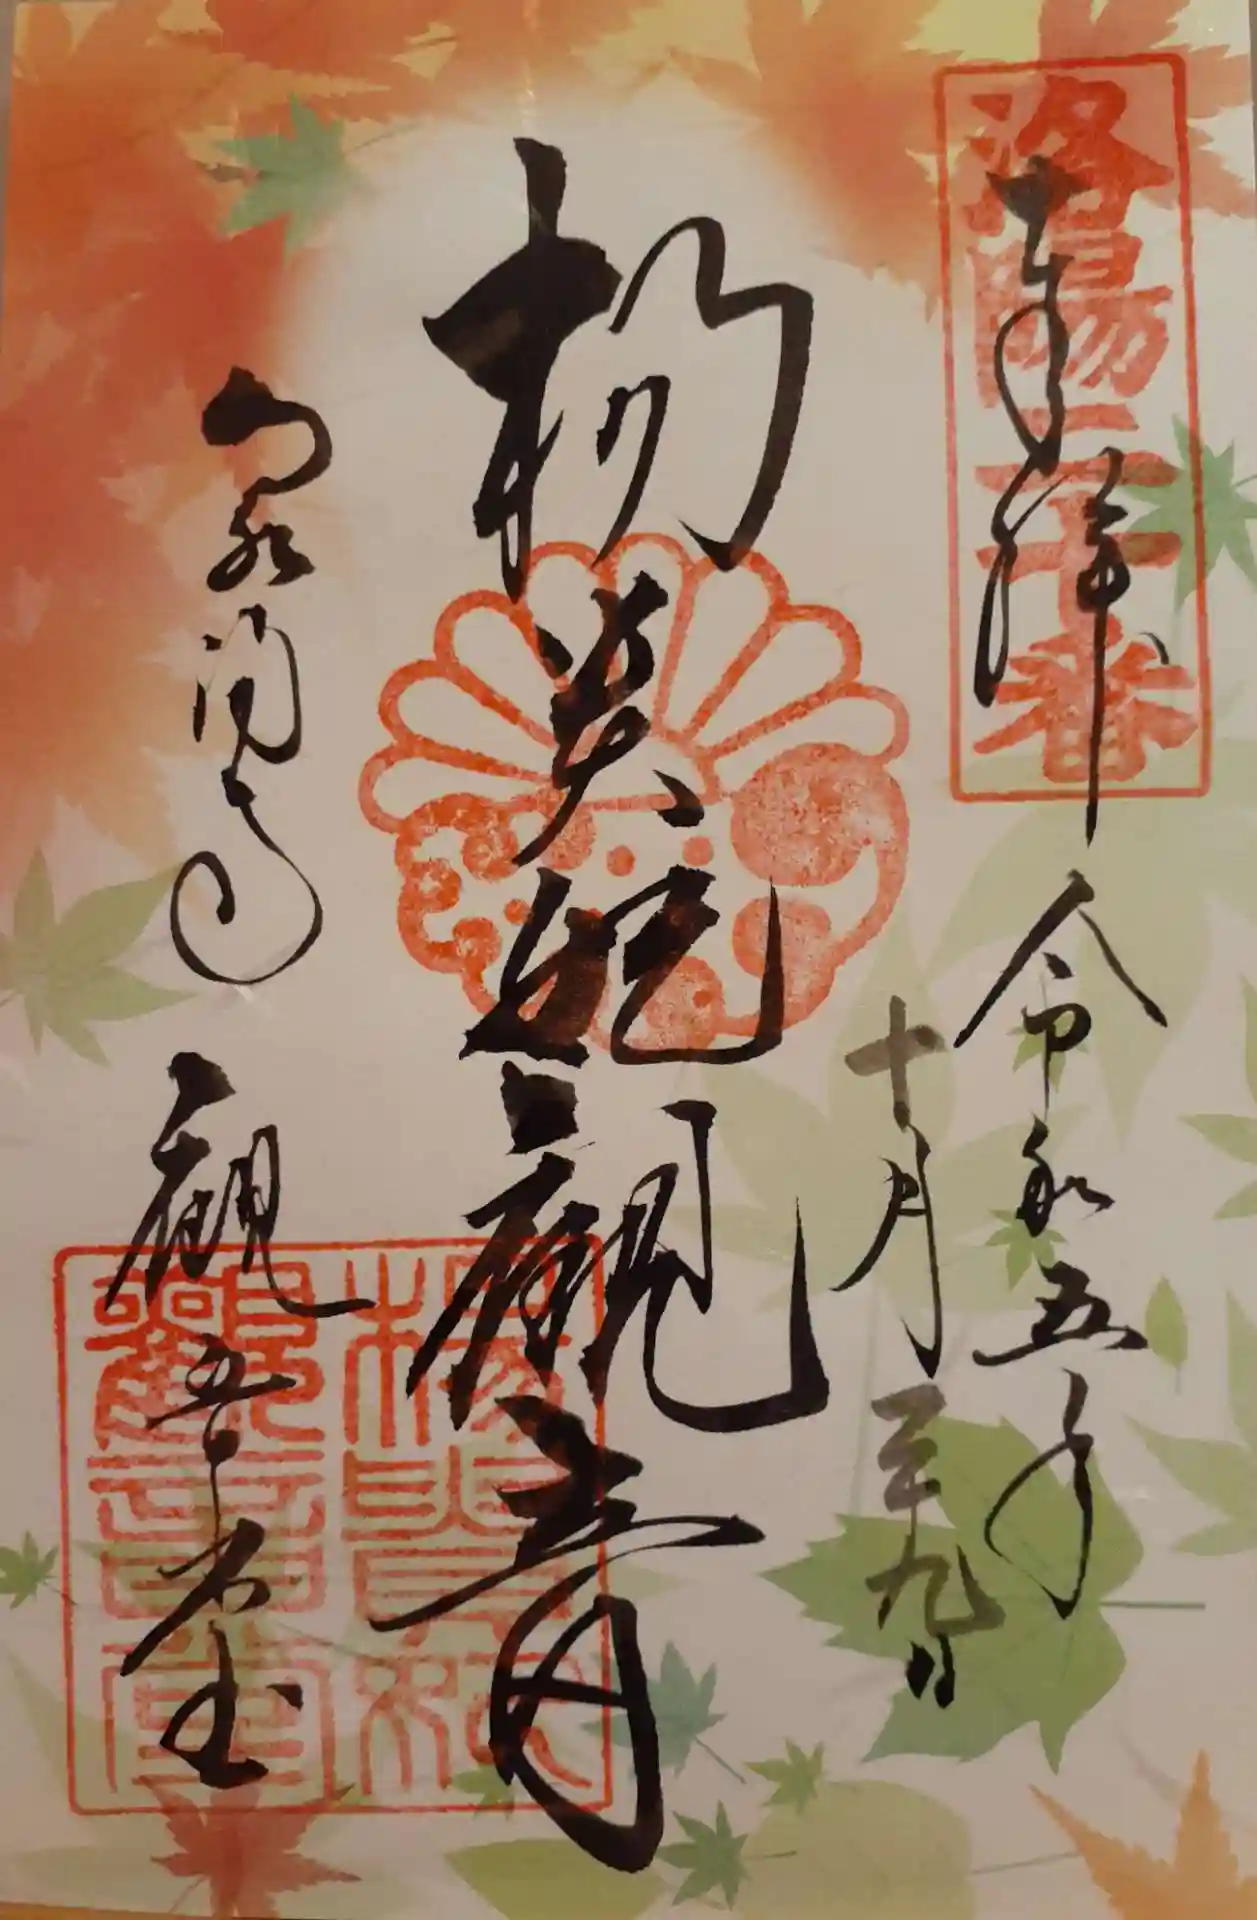 洛陽二十番
奉拝
令和五年
十月二十九日
楊貴妃観音
泉涌寺
観音堂
楊貴妃
観音堂